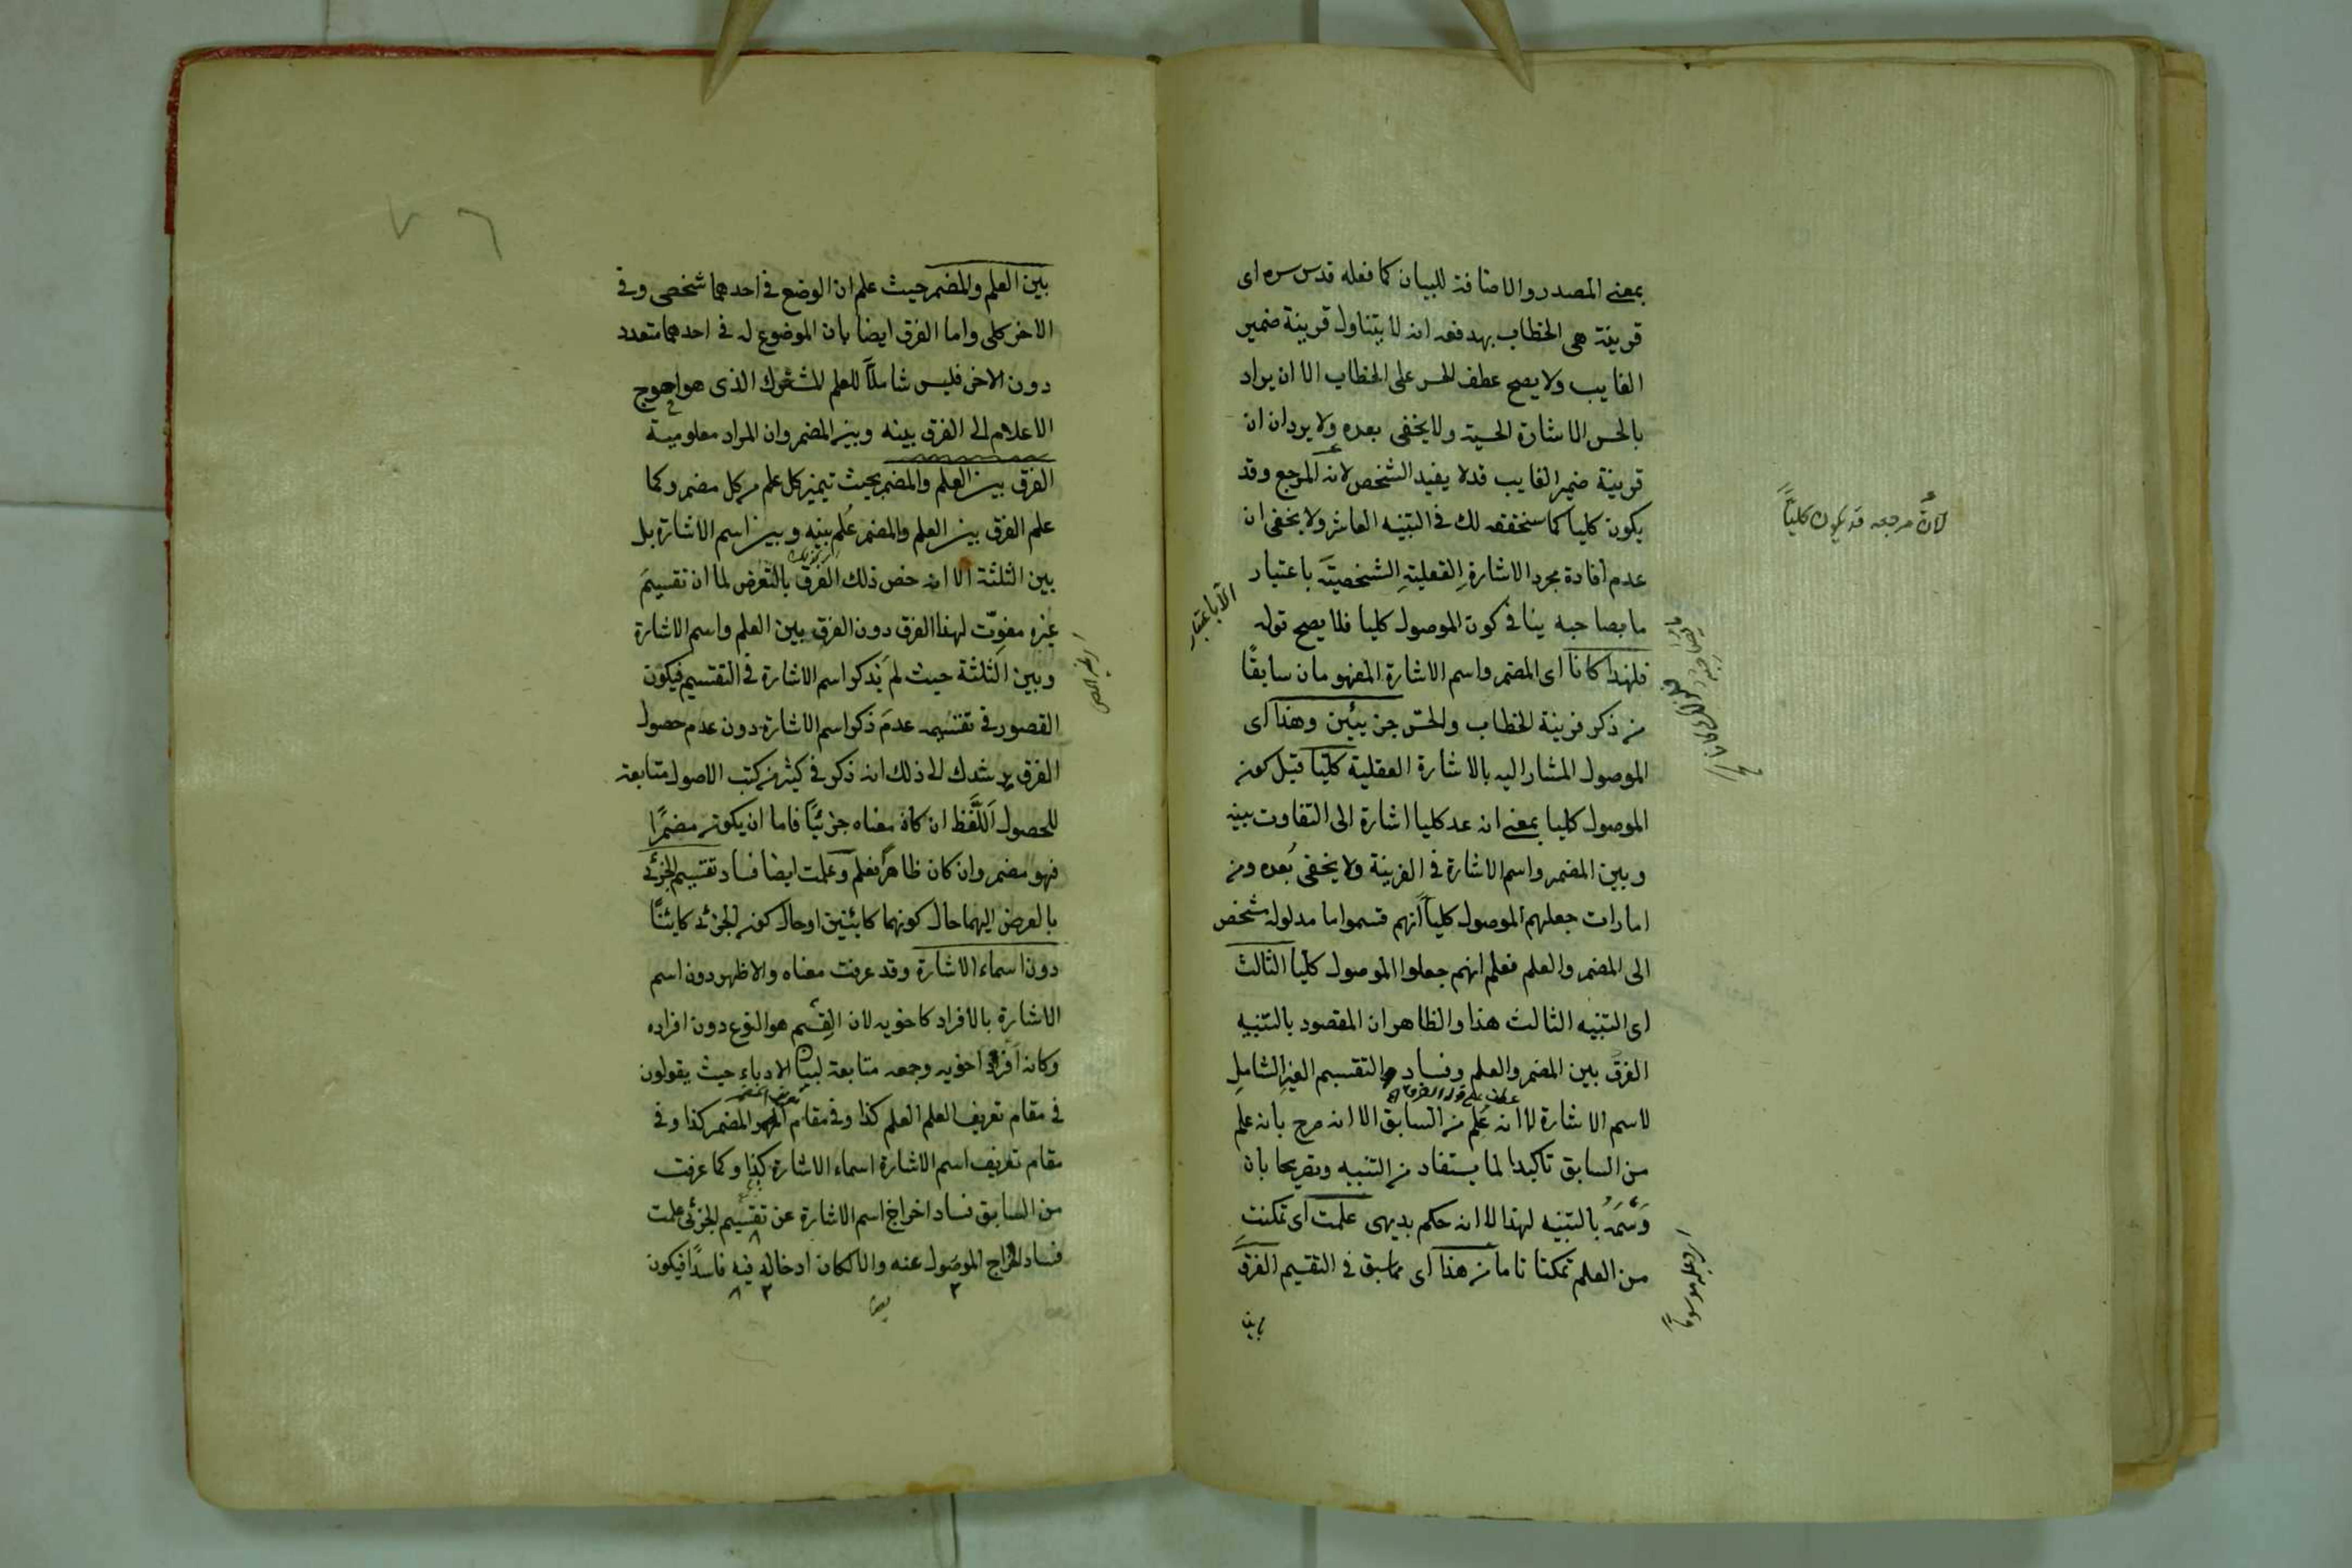 بمعنى المصدر والاضافة للبيان كما فعله قدس سره اى
قرينة هى الخطاب بهد فعه انه لا يتناول قرينة ضمير
الغايب ولا يصح عطف الحس على الخطاب الا ان يراد
بالحس الاشارة الحسية ولا يخفى بعده ولا يرد ان ان
قرينة ضمير الغايب قد لا يفيد الشخص لانه المرجع وقد
يكون كليا كما سنحققه لك فى التنبيه العاشر ولا يخفى ان
عدم افادة مجرد الاشارة العقلية الشخصية باعتبار
ما يصاحبه ينافى كون الموصول كليا فلا يصح قوله
فلهذا كانا اى المضمر واسم الاشارة المفهومان سابقًا
من ذكر قرينة الخطاب والحسّ جزئيين وهذا اى
الموصول المشار اليه بالاشارة العقلية كليًا قيل كونه
الموصول كليا بمعنى انه عد كليا اشارة الى التفاوت بينه
وبين المضمر واسم الاشارة فى القرينة ولا يخفى بُعده ومن
امارات جعلهم الموصول كلياً انهم قسموا ما مدلوله شخص
الى المضمر والعلم فعلم انهم جعلوا الموصول كليا الثالث
اى التنبيه الثالث هذا والظاهر ان المقصود بالتنبيه
الفرق بين المضمر والعلم وفساد التقسيم الغير الشامل
عطف على قوله الفرق
لاسم الاشارة لا انه عُلِم من السابق الا انه صرح بانه علم
من السابق تاكيدا لما يستفاد من التنبيه وتصريحا بان
وَسْمَهُ بالتنبيه لهذا لا انه حكم بديهى علمت اى تمكنت
من العلم تمكنا تاما من هذا اى مما سبق فى التقسيم الفرق
بين
لانّ مرجعه قد يكون كليّاً
الا باعتبار
بين العلم والمضمر حيث علم ان الوضع فى احدهما شخصى وفى
الاخر كلى واما الفرق ايضا بان الموضوع له فى احدهما متعدد
دون الاخر فليس شاملاً للعلم المشترك الذى هو احوج
الاعلام الى الفرق بينه وبين المضمر وان المراد معلومية
الفرق بين العلم والمضمر بحيث تميز كل علم من كل مضمر وكما
علم الفرق بين العلم والمضمر عُلِم بينه وبين اسم الاشارة بل
بين الثلثة الا انه خص ذلك الفرق بالتعرض لما ان تقسيمَ
غيره مفوّت لهذا الفرق دون الفرق بين العلم واسم الاشارة
وبين الثلثة حيث لم يَذكر اسم الاشارة فى التقسيم فيكون
القصور فى تقسيمه عدمَ ذكر اسم الاشارة دون عدم حصول
الفرق يرشدك الى ذلك انه ذكر فى كثير من كتب الاصول متابعة
للمحصول اَللَّفظ ان كان معناه جزئيًّا فاما ان يكون مضمرًا
فهو مضمر وان كان ظاهرًا فعلم وعلمت ايضا فساد تقسيم الجزئى
بالعرض اليهما حال كونهما كائنين او حال كونه الجزئى كائنًا
دون اسماء الاشارة وقد عرفت معناه والاظهر دون اسم
الاشارة بالافراد كاخويه لان القِسْم هو النوع دون افراده
وكانه افرد اخويه وجمعه متابعة لبيان الادباء حيث يقولون
فى مقام تعريف العلم العلم كذا وفى مقام المضمر المضمر كذا وفى
مقام تعريف اسم الاشارة اسماء الاشارة كذا وكما عرفت
من السابق فساد اخراج اسم الاشارة عن تقسيم الجزئى علمت
فساد اخراج الموصول عنه والا لكان ادخاله فيه فاسدًا فيكون